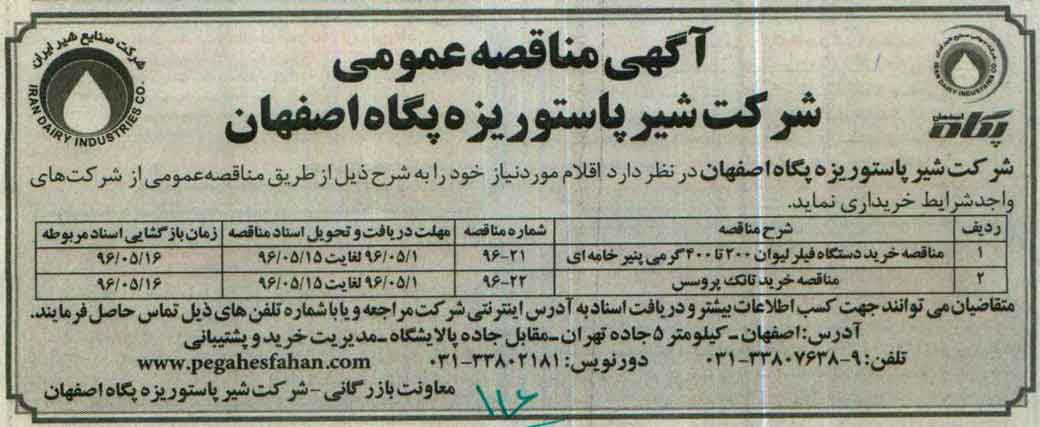 آگهی مناقصه عمومی
شرکت شیر پاستوریزه پگاه اصفهان
شرکت صنایع شیر ایران
IRAN DAIRY INDUSTRIES CO.
پگاه اصفهان
شرکت شیر پاستوریزه پگاه اصفهان در نظر دارد اقلام مورد نیاز خود را به شرح ذیل از طریق مناقصه عمومی از شرکت‌های
واجد شرایط خریداری نماید.
ردیف شرح مناقصه شماره مناقصه مهلت دریافت و تحویل اسناد مناقصه زمان بازگشایی اسناد مربوطه
۱ مناقصه خرید دستگاه فیلر لیوان ۲۰۰ تا ۴۰۰ گرمی پنیر خامه ای ۹۶-۲۱ ۹۶/۰۵/۱ لغایت ۹۶/۰۵/۱۵ ۹۶/۰۵/۱۶
۲ مناقصه خرید تانک پروسس ۹۶-۲۲ ۹۶/۰۵/۱ لغایت ۹۶/۰۵/۱۵ ۹۶/۰۵/۱۶
متقاضیان می توانند جهت کسب اطلاعات بیشتر و دریافت اسناد به آدرس اینترنتی شرکت مراجعه و یا با شماره تلفن های ذیل تماس حاصل فرمایند.
آدرس: اصفهان ـ کیلومتر ۵ جاده تهران ـ مقابل جاده پالایشگاه ـ مدیریت خرید و پشتیبانی
تلفن: ۹-۳۳۸۰۷۶۳۸-۰۳۱ دورنویس: ۳۳۸۰۲۱۸۱-۰۳۱ www.pegahesfahan.com
معاونت بازرگانی - شرکت شیر پاستوریزه پگاه اصفهان